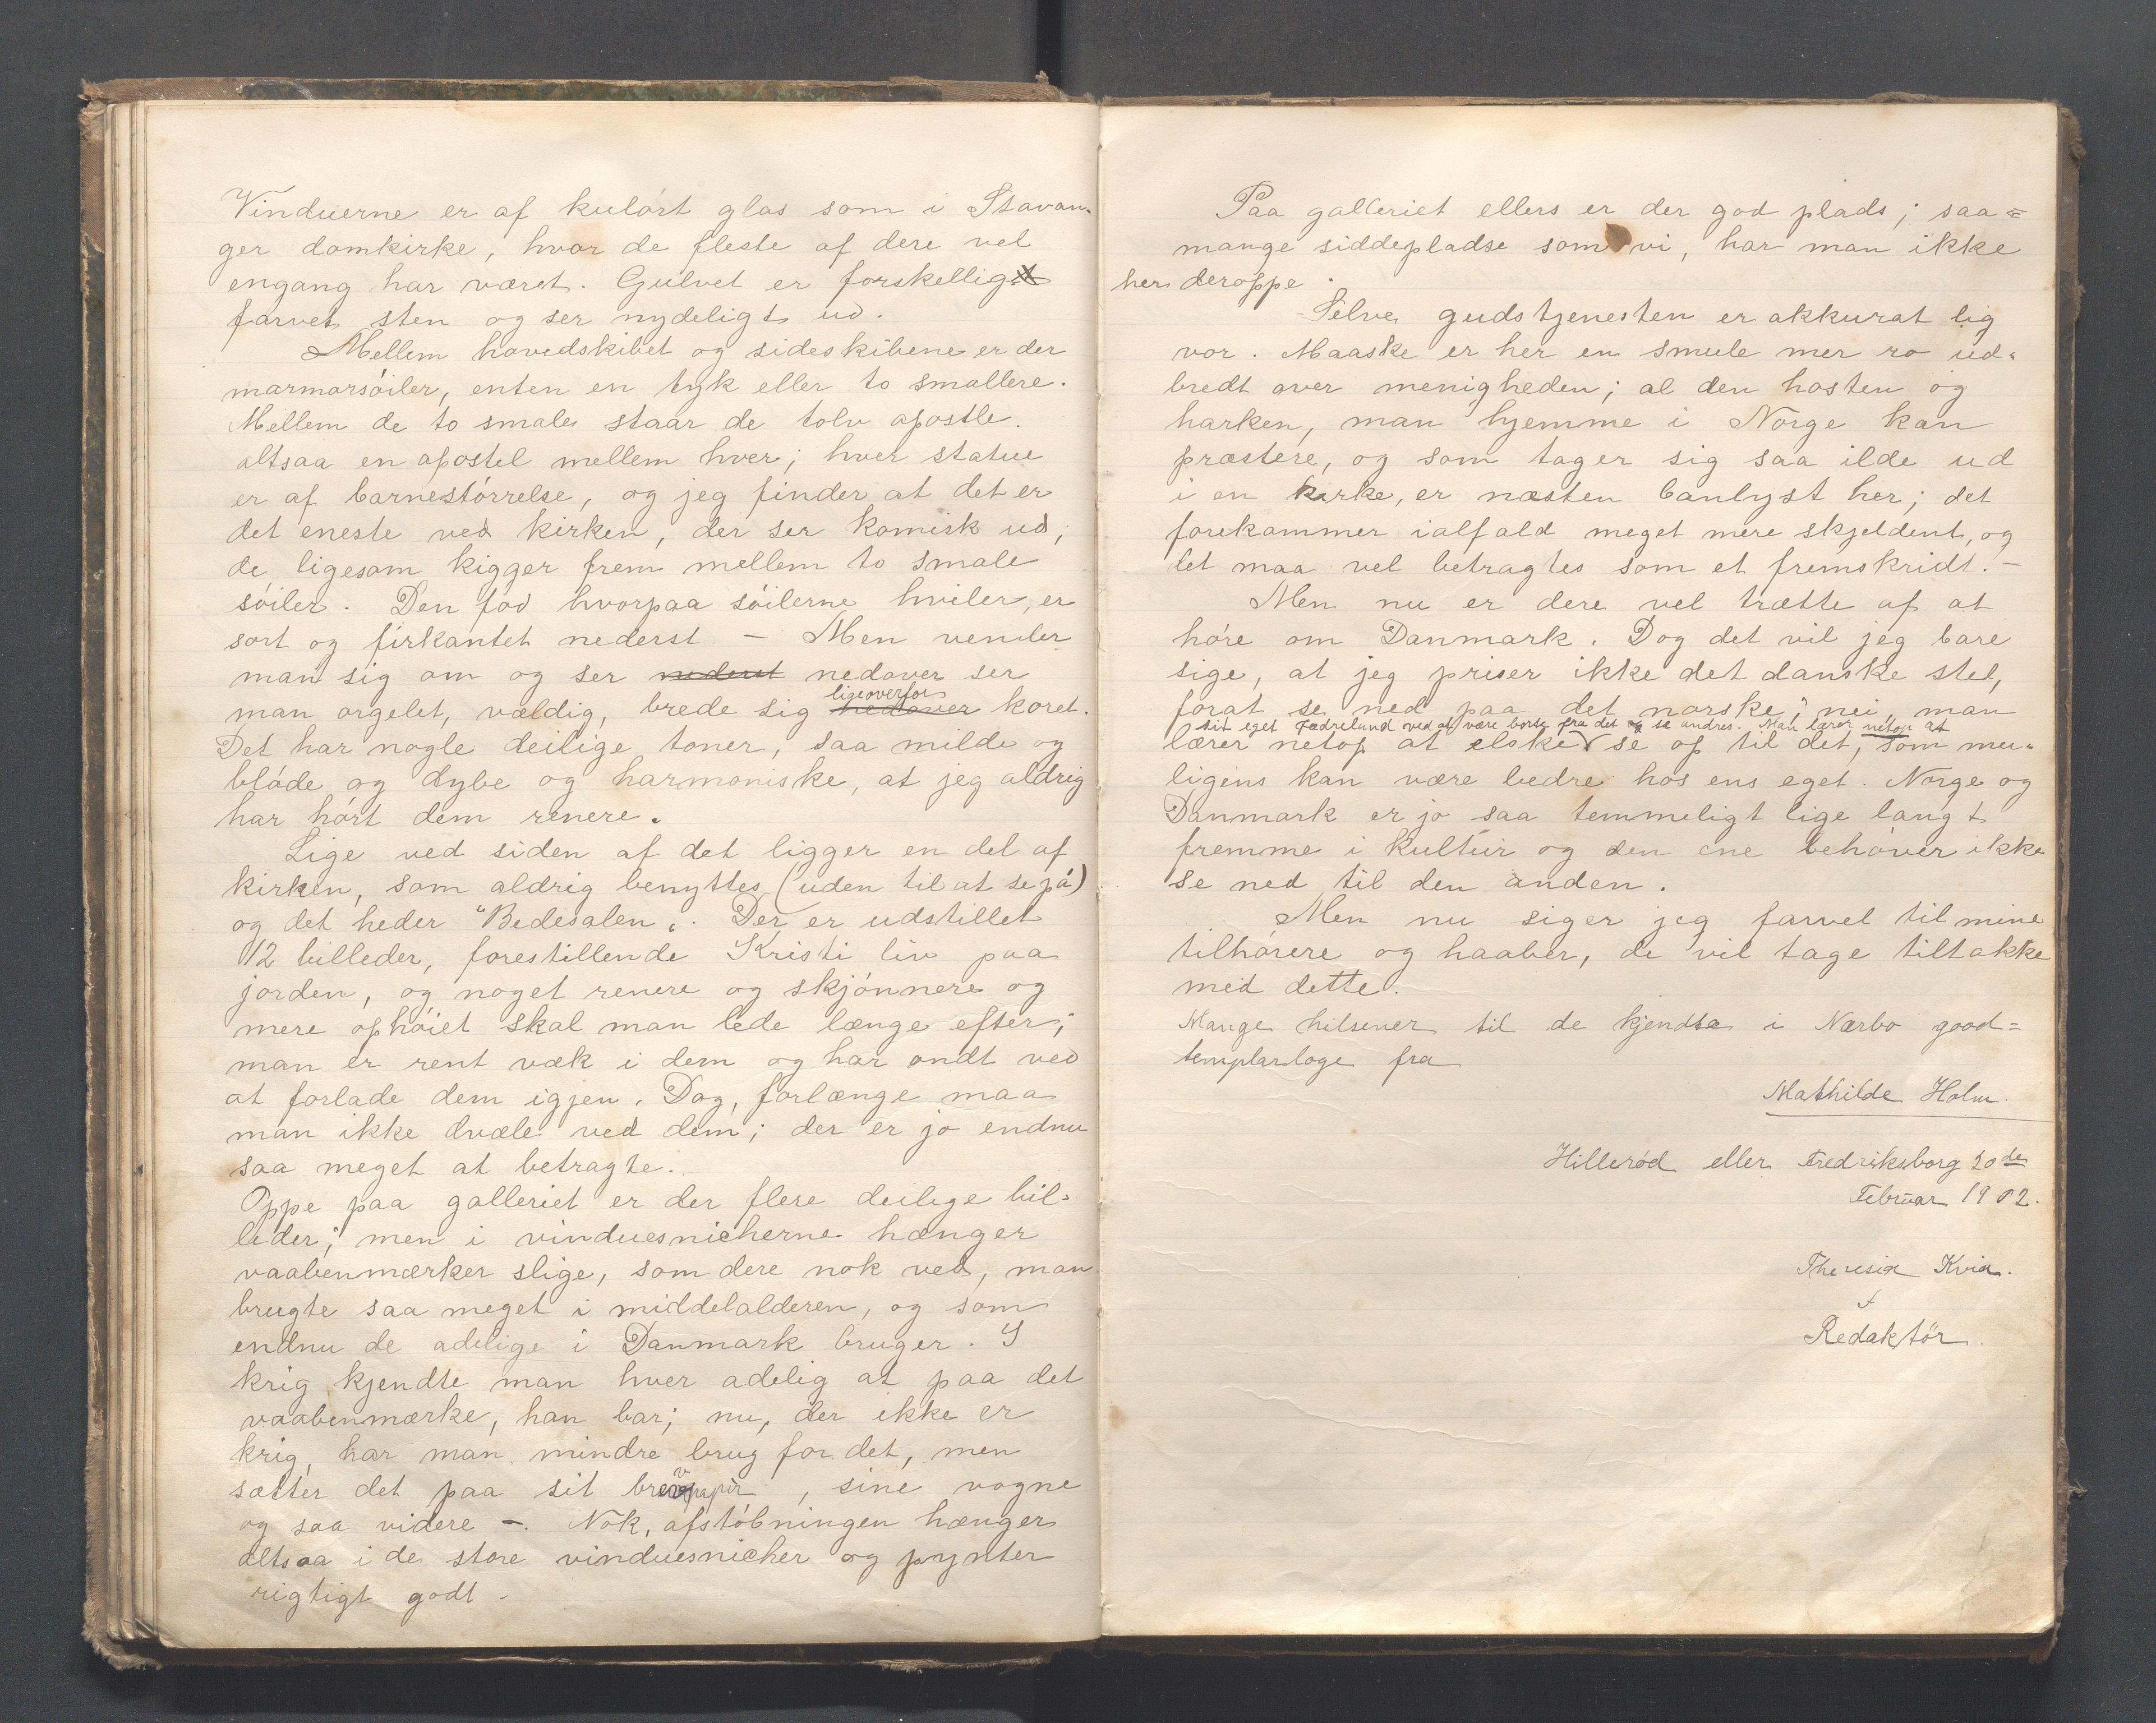 Vinduerne er af kulørt glas som i Stavan-
ger domkirke, hvor de fleste af dere vel
engang har været. Gulvet er forskellig
farvet sten og ser nydeligt ud.
Mellem hovedskibet og sideskibene er der
marmorsøiler, enten en tyk eller to smallere.
Mellem de to smale staar de tolv apostle.
altsaa en apostel mellem hver; hver statue
er af barnestørrelse, og jeg finder at det er
det eneste ved kirken, der ser komisk ud;
de ligesom kigger frem mellem to smale
søiler. Den fod hvorpaa søilerne hviler, er
sort og firkantet nederst — Men vender
man sig om og ser nederst nedover ser
man orgelet, vældig, brede sig nedover ligeoverfor koret.
Det har nogle deilige toner, saa milde og
bløde og dybe og harmoniske, at jeg aldrig
har hørt dem renere.
Lige ved siden af det ligger en del af
kirken, som aldrig benyttes (uden til at se på)
og det heder "Bedesalen". Der er udstillet
12 billeder, forestillende Kristi liv paa
jorden, og noget renere og skjønnere og
mere ophøiet skal man lede længe efter;
man er rent væk i dem og har ondt ved
at forlade dem igjen. Dog, forlænge maa
man ikke dvæle ved dem; der er jo endnu
saa meget at betragte.
Oppe paa galleriet er der flere deilige bil-
leder; men i vinduesnicherne hænger
vaabenmærker slige, som dere nok ved, man
brugte saa meget i middelalderen, og som
endnu de adelige i Danmark bruger. I
krig kjendte man hver adelig at paa det
vaabenmærke, han bar; nu, der ikke er
krig, har man mindre brug for det, men
sætter det paa sit brevpapir, sine vogne
og saa videre —. Nok, afstøbningen hænger
altsaa i de store vinduesnicher og pynter
rigtigt godt -
Paa galleriet ellers er der god plads; saa=
mange siddepladse som vi, har man ikke
her deroppe.
Selve gudstjenesten er akkurat lig
vor. Maaske er her en smule mer ro ud-
bredt over menigheden; al den hosten og
harken, man hjemme i Norge kan
præstere, og som tager sig saa ilde ud
i en kirke, er næsten banlyst her; det
forekommer ialfald meget mere skjeldent, og
det maa vel betragtes som et fremskridt. —
Men nu er dere vel trætte af at
høre om Danmark. Dog det vil jeg bare
sige, at jeg priser ikke det danske stel,
forat se ned paa det norske", nei, man
sit eget Fædreland ved at være borte fra det og se andres. Man lærer netop at
lærer netop at elske V se op til det, som mu-
ligens kan være bedre hos ens eget. Norge og
Danmark er jo saa temmeligt lige langt
fremme i kultur og den ene behøver ikke
se ned til den anden.
Men nu siger jeg farvel til mine
tilhørere og haaber, de vil tage tiltakke
med dette.
Mange hilsener til de kjendte i Nærbø good=
templarloge fra
Mathilde Holm.
Hillerød eller Fredriksborg 20de
Februar 1902.
Theresia Kvia.
Redaktør.